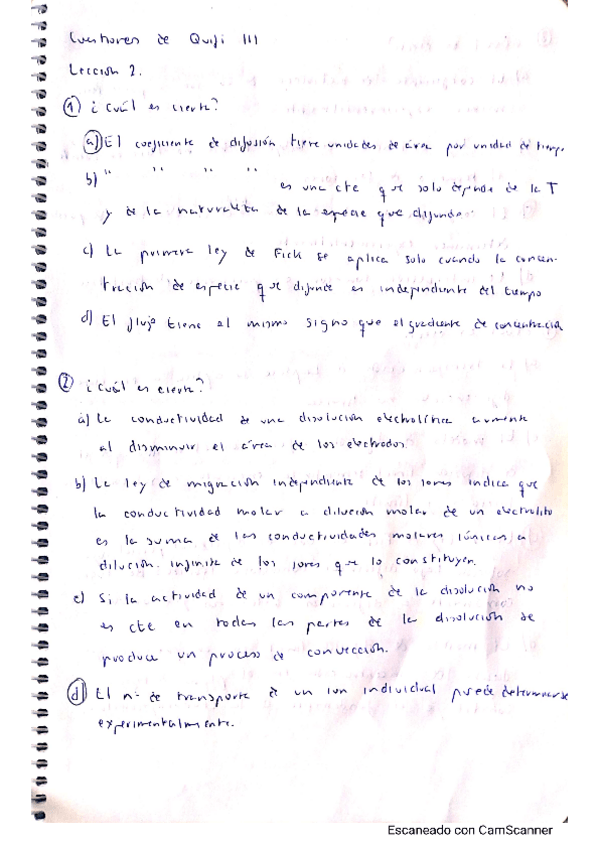 Cuestiones de Quifi III
Lección 2.
① ¿Cuál es cierta?
a) El coeficiente de difusión tiene unidades de área por unidad de tiempo
b) " " " " es una cte que solo depende de la T
y de la naturaleza de la especie que difunde.
c) La primera ley de Fick se aplica solo cuando la concen-
tración de especie que difunde es independiente del tiempo
d) El flujo tiene el mismo signo que el gradiente de concentración
② ¿Cuál es cierta?
a) La conductividad de una disolución electrolítica aumenta
al disminuir el área de los electrodos.
b) La ley de migración independiente de los iones indica que
la conductividad molar a dilución molar de un electrolito
es la suma de las conductividades molares iónicas a
dilución infinita de los iones que lo constituyen.
c) Si la actividad de un componente de la disolución no
es cte en todas las partes de la disolución se
produce un proceso de convección.
d) El nº de transporte de un ion individual puede determinarse
experimentalmente.
Escaneado con CamScanner